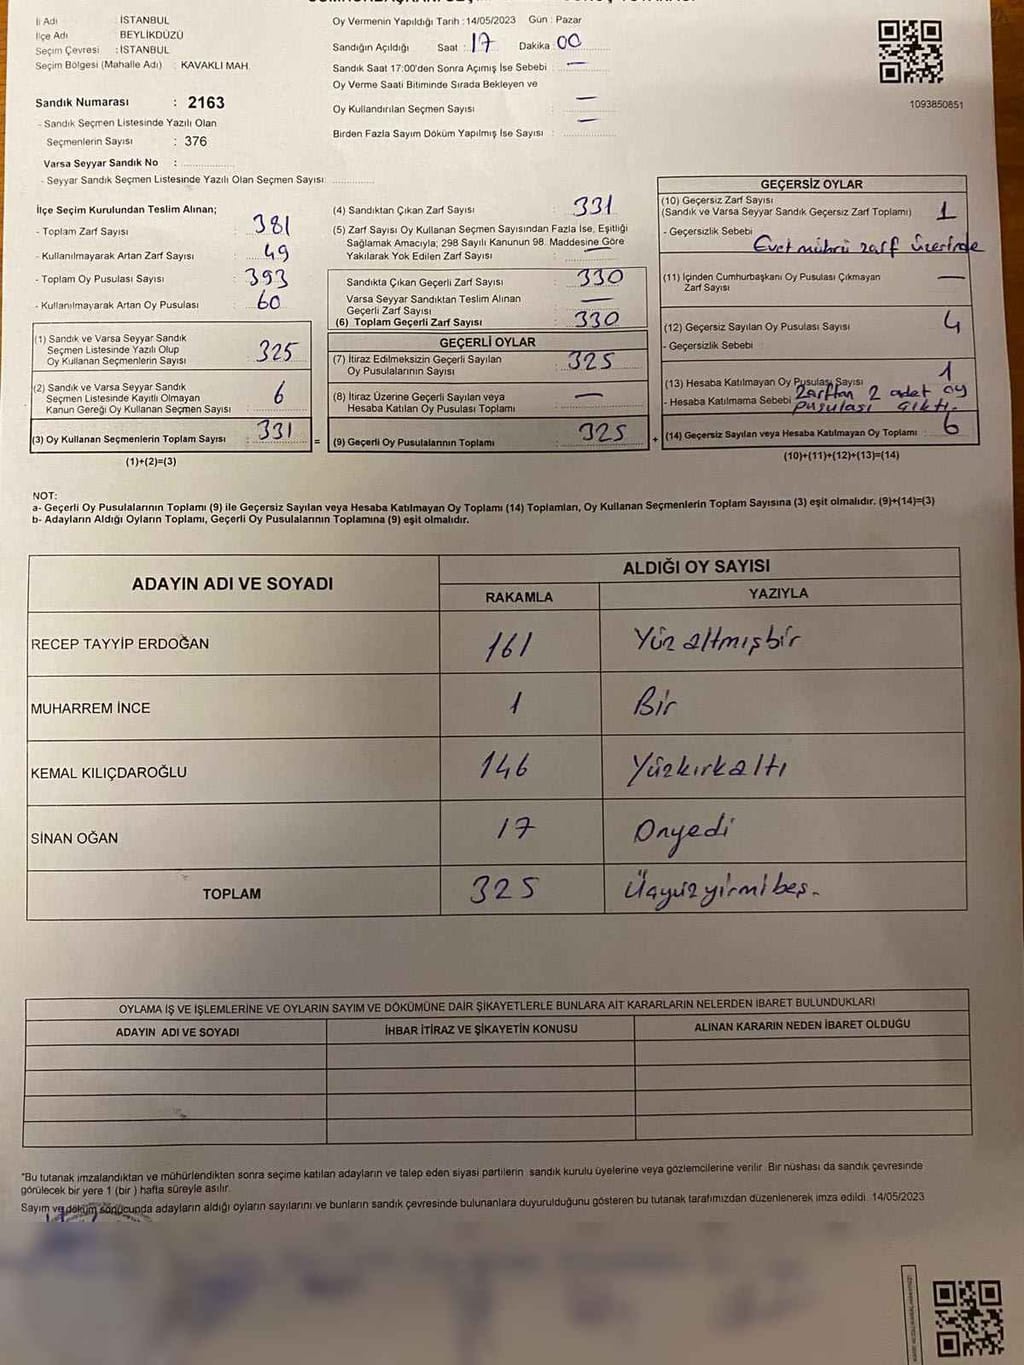 İl Adı : İSTANBUL
İlçe Adı : BEYLİKDÜZÜ
Seçim Çevresi : İSTANBUL
Seçim Bölgesi (Mahalle Adı) : KAVAKLI MAH.
Sandık Numarası : 2163
- Sandık Seçmen Listesinde Yazılı Olan
Seçmenlerin Sayısı : 376
Varsa Seyyar Sandık No :
- Seyyar Sandık Seçmen Listesinde Yazılı Olan Seçmen Sayısı:
Oy Vermenin Yapıldığı Tarih : 14/05/2023 Gün : Pazar
Sandığın Açıldığı Saat : 17 Dakika : 00
Sandık Saat 17:00'den Sonra Açımış İse Sebebi : —
Oy Verme Saati Bitiminde Sırada Bekleyen ve
Oy Kullandırılan Seçmen Sayısı : —
Birden Fazla Sayım Döküm Yapılmış İse Sayısı : —
1093850851
İlçe Seçim Kurulundan Teslim Alınan;
- Toplam Zarf Sayısı : 381
- Kullanılmayarak Artan Zarf Sayısı : 49
- Toplam Oy Pusulası Sayısı : 393
- Kullanılmayarak Artan Oy Pusulası : 60
(1) Sandık ve Varsa Seyyar Sandık
Seçmen Listesinde Yazılı Olup
Oy Kullanan Seçmenlerin Sayısı : 325
(2) Sandık ve Varsa Seyyar Sandık
Seçmen Listesinde Kayıtlı Olmayan
Kanun Gereği Oy Kullanan Seçmen Sayısı : 6
(3) Oy Kullanan Seçmenlerin Toplam Sayısı : 331 =
(1)+(2)=(3)
(4) Sandıktan Çıkan Zarf Sayısı : 331
(5) Zarf Sayısı Oy Kullanan Seçmen Sayısından Fazla İse, Eşitliği
Sağlamak Amacıyla; 298 Sayılı Kanunun 98. Maddesine Göre
Yakılarak Yok Edilen Zarf Sayısı : —
Sandıkta Çıkan Geçerli Zarf Sayısı : 330
Varsa Seyyar Sandıktan Teslim Alınan
Geçerli Zarf Sayısı : —
(6) Toplam Geçerli Zarf Sayısı : 330
GEÇERLİ OYLAR
(7) İtiraz Edilmeksizin Geçerli Sayılan
Oy Pusulalarının Sayısı : 325
(8) İtiraz Üzerine Geçerli Sayılan veya
Hesaba Katılan Oy Pusulası Toplamı : —
(9) Geçerli Oy Pusulalarının Toplamı : 325 +
GEÇERSİZ OYLAR
(10) Geçersiz Zarf Sayısı
(Sandık ve Varsa Seyyar Sandık Geçersiz Zarf Toplamı) 1
- Geçersizlik Sebebi
Evet mührü zarf üzerinde
(11) İçinden Cumhurbaşkanı Oy Pusulası Çıkmayan
Zarf Sayısı —
(12) Geçersiz Sayılan Oy Pusulası Sayısı 4
- Geçersizlik Sebebi
(13) Hesaba Katılmayan Oy Pusulası Sayısı 1
- Hesaba Katılmama Sebebi Zarftan 2 adet oy
pusulası çıktı.
(14) Geçersiz Sayılan veya Hesaba Katılmayan Oy Toplamı : 6
(10)+(11)+(12)+(13)=(14)
NOT:
a- Geçerli Oy Pusulalarının Toplamı (9) ile Geçersiz Sayılan veya Hesaba Katılmayan Oy Toplamı (14) Toplamları, Oy Kullanan Seçmenlerin Toplam Sayısına (3) eşit olmalıdır. (9)+(14)=(3)
b- Adayların Aldığı Oyların Toplamı, Geçerli Oy Pusulalarının Toplamına (9) eşit olmalıdır.
ADAYIN ADI VE SOYADI
ALDIĞI OY SAYISI
RAKAMLA YAZIYLA
RECEP TAYYİP ERDOĞAN 161 Yüz altmışbir
MUHARREM İNCE 1 Bir
KEMAL KILIÇDAROĞLU 146 Yüzkırkaltı
SİNAN OĞAN 17 Onyedi
TOPLAM 325 Üçyüzyirmibeş.
OYLAMA İŞ VE İŞLEMLERİNE VE OYLARIN SAYIM VE DÖKÜMÜNE DAİR ŞİKAYETLERLE BUNLARA AİT KARARLARIN NELERDEN İBARET BULUNDUKLARI
ADAYIN ADI VE SOYADI İHBAR İTİRAZ VE ŞİKAYETİN KONUSU ALINAN KARARIN NEDEN İBARET OLDUĞU
*Bu tutanak imzalandıktan ve mühürlendikten sonra seçime katılan adayların ve talep eden siyasi partilerin sandık kurulu üyelerine veya gözlemcilerine verilir. Bir nüshası da sandık çevresinde
görülecek bir yere 1 (bir ) hafta süreyle asılır.
Sayım ve döküm sonucunda adayların aldığı oyların sayılarını ve bunların sandık çevresinde bulunanlara duyurulduğunu gösteren bu tutanak tarafımızdan düzenlenerek imza edildi. 14/05/2023